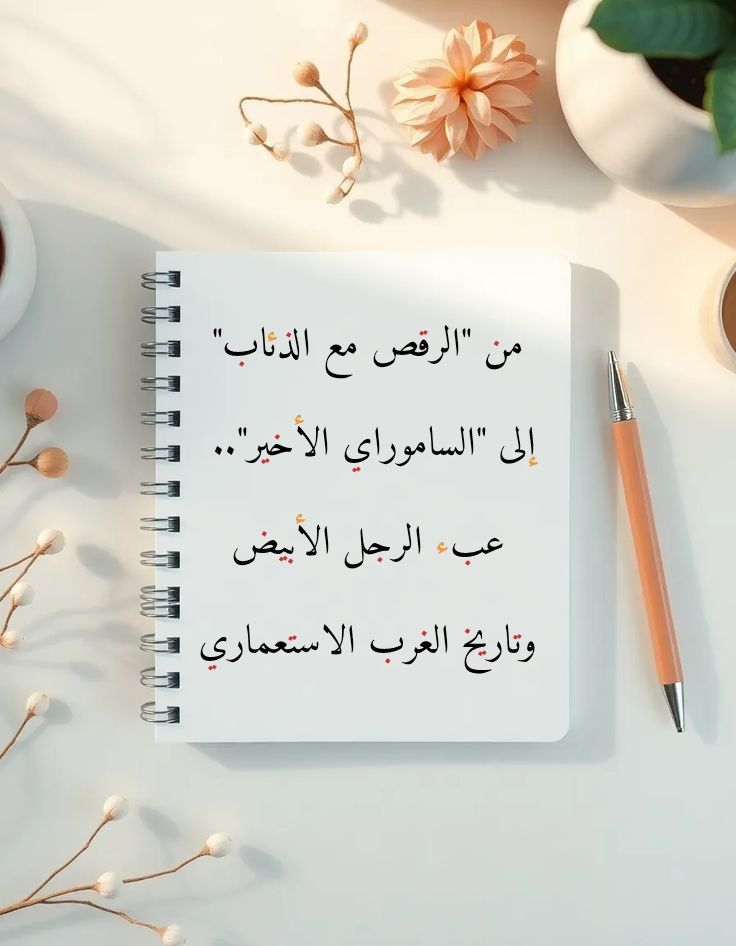 من "الرقص مع الذئاب"
إلى "الساموراي الأخير"..
عبء الرجل الأبيض
وتاريخ الغرب الاستعماري